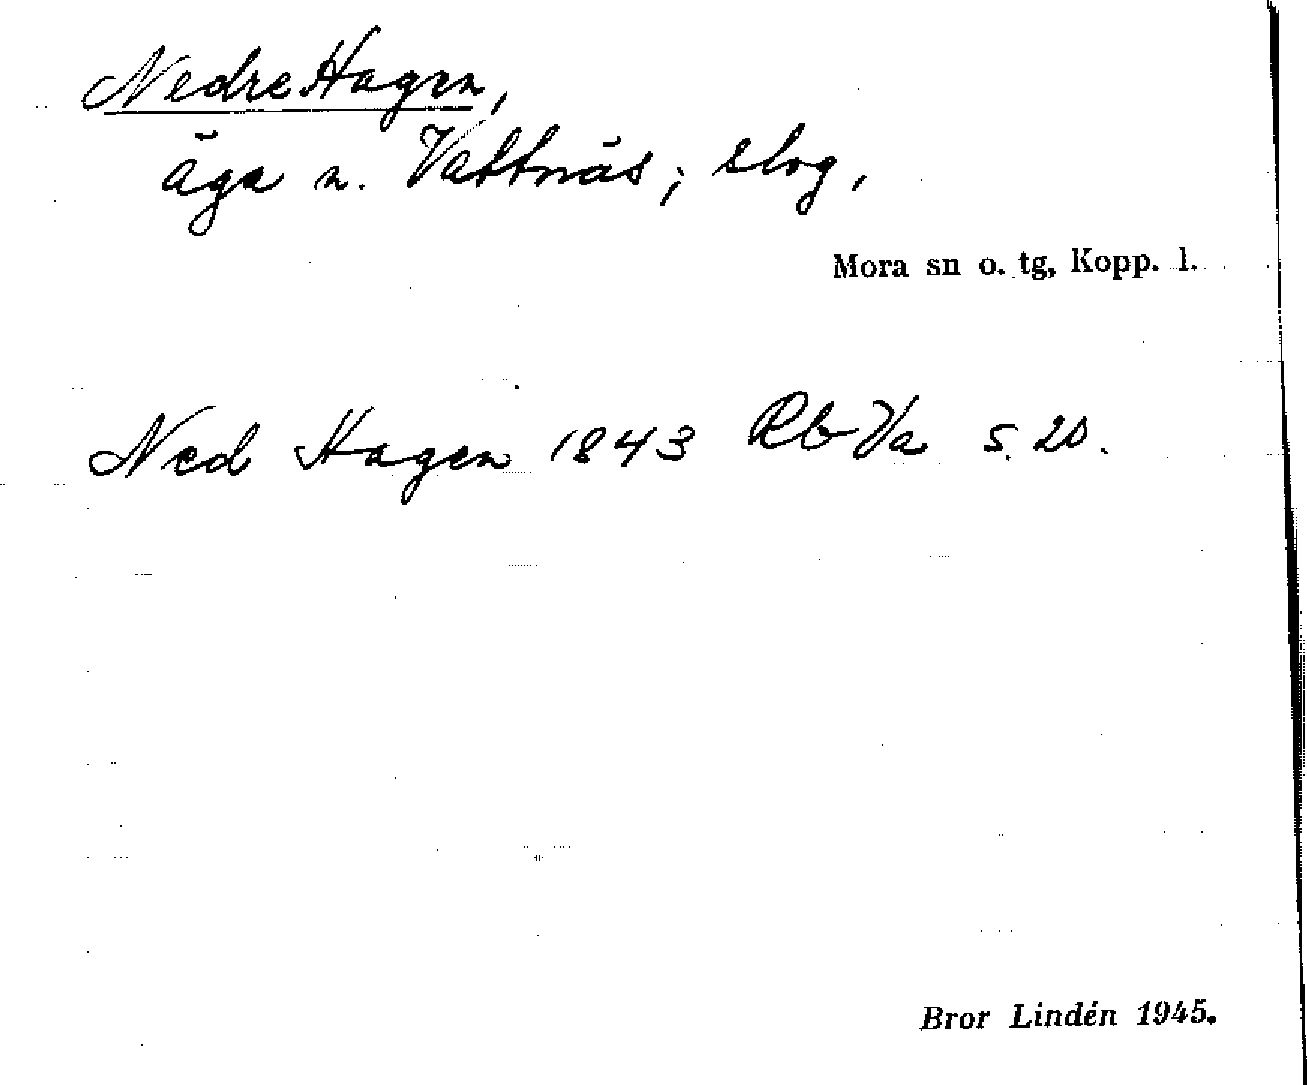 Nedre Hagen,
äga n. Vattnäs; slog,
Mora sn o. tg, Kopp. l.
Ned Hagen 1843 Rb Va s. 20.
Bror Lindén 1945.